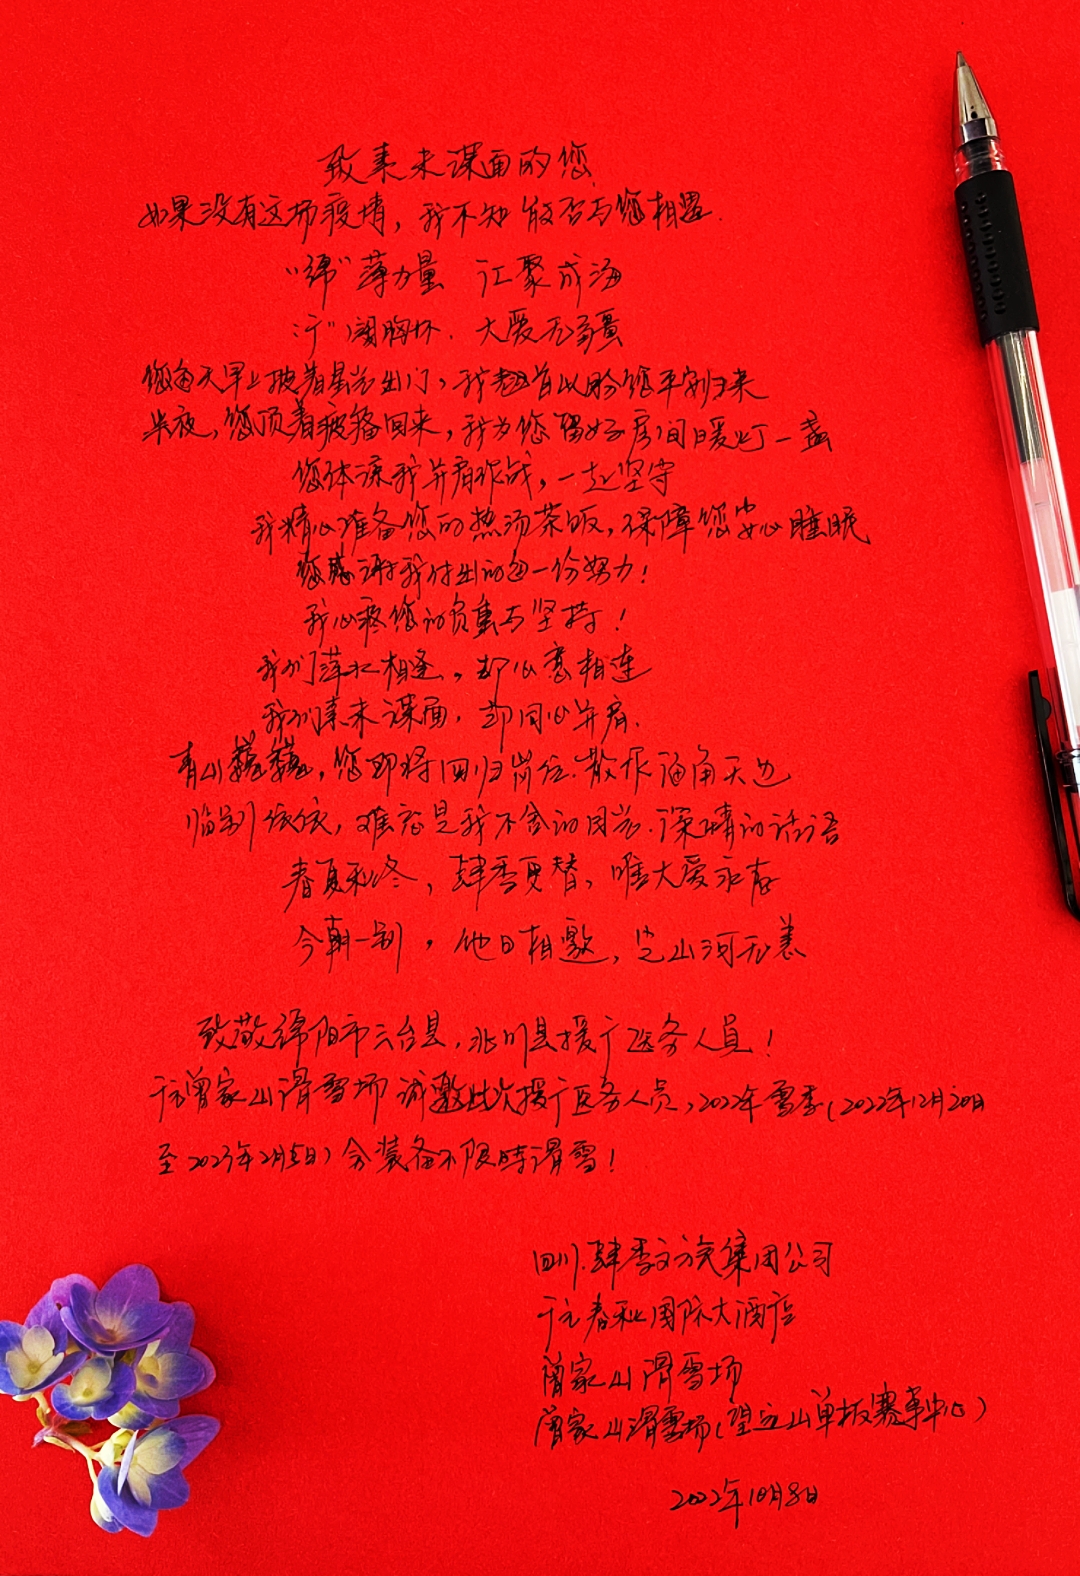 致素未谋面的您
如果没有这场疫情，我不知能否与您相遇.
“绵”薄力量 汇聚成海
“广”阔胸怀. 大爱无疆
您每天早上披着星光出门，我翘首以盼您平安归来
半夜，您顶着疲惫回来，我为您留好房间暖灯一盏
您体谅我并肩作战，一起坚守
我精心准备您的热汤茶饭，保障您安心睡眠
您感谢我付出的每一份努力！
我心疼您的负重与坚持！
我们萍水相逢，却心意相连
我们素未谋面，却同心并肩.
青山巍巍，您即将回归岗位.散作海角天边
临别依依，难忘是我不舍的目光.深情的话语
春夏秋冬，肆季更替，唯大爱永存
今朝一别，他日相邀，定山河无恙
致敬绵阳市三台县，北川县援广医务人员！
广元曾家山滑雪场诚邀此次援广医务人员，2022年雪季（2022年12月20日
至2023年2月5日）含装备不限时滑雪！
四川肆季文旅集团公司
广元春秋国际大酒店
曾家山滑雪场
曾家山滑雪场（望远山单板赛事中心）
2022年10月8日